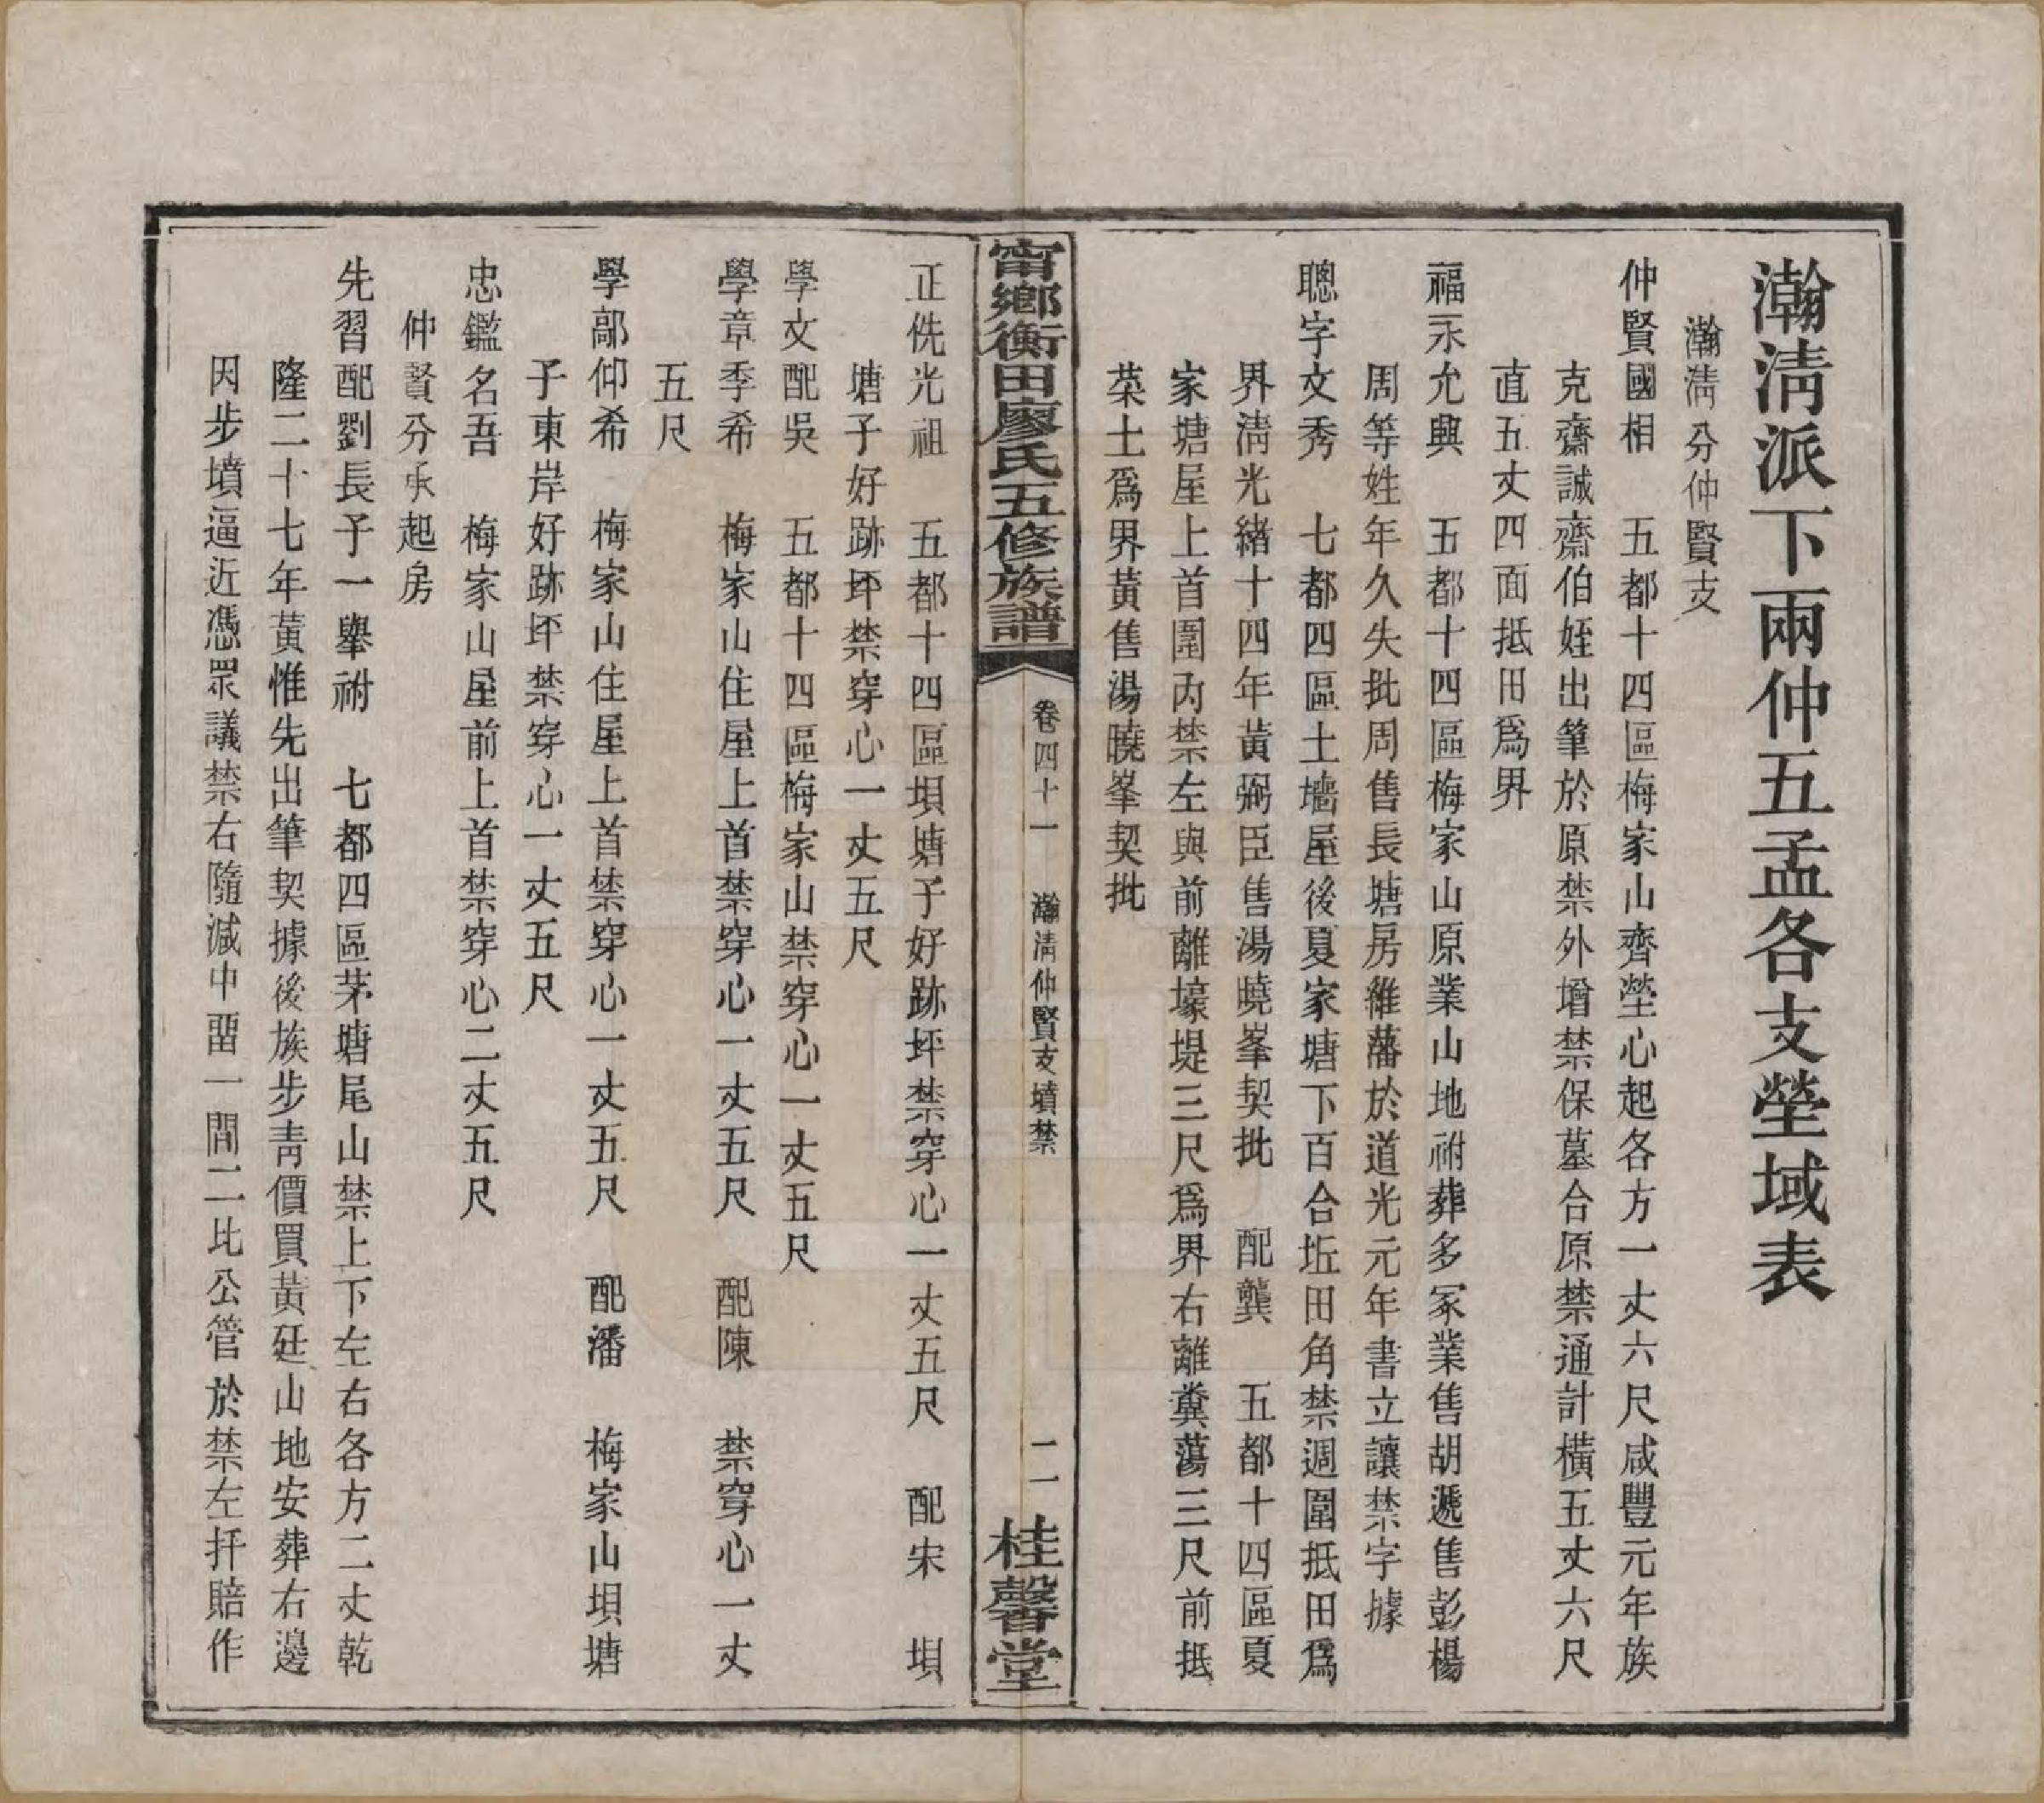 瀚淸派下兩仲五孟各支塋域表
瀚淸分仲賢支
仲賢國相　五都十四區梅家山齊塋心起各方一丈六尺咸豐元年族
克齋誠齋伯姪出筆於原禁外增禁保墓合原禁通計橫五丈六尺
直五丈四面抵田爲界
福永允興　五都十四區梅家山原業山地祔葬多冢業售胡遞售彭楊
周等姓年久失批周售長塘房維藩於道光元年書立讓禁字據
聰字文秀　七都四區土墻屋後夏家塘下百合坵田角禁週圍抵田爲
界淸光緒十四年黃弼臣售湯曉峯契批　配龔　五都十四區夏
家塘屋上首圍內禁左與前離壕堤三尺爲界右離糞蕩三尺前抵
菜土爲界黃售湯曉峯契批
甯鄉衡田廖氏五修族譜
卷四十一　瀚淸仲賢支墳禁
二一　桂馨堂
正侁光祖　五都十四區垻塘子好跡坪禁穿心一丈五尺　配宋　垻
塘子好跡坪禁穿心一丈五尺
學文配吳　五都十四區梅家山禁穿心一丈五尺
學章季希　梅家山住屋上首禁穿心一丈五尺　配陳　禁穿心一丈
五尺
學鄗仰希　梅家山住屋上首禁穿心一丈五尺　配潘　梅家山垻塘
子東岸好跡坪禁穿心一丈五尺
忠鑑名吾　梅家山屋前上首禁穿心二丈五尺
仲賢分承起房
先習配劉長子一舉祔　七都四區茅塘尾山禁上下左右各方二丈乾
隆二十七年黃惟先出筆契據後族步靑價買黃廷山地安葬右邊
因步墳逼近憑眾議禁右隨減中畱一間二比公管於禁左扦賠作